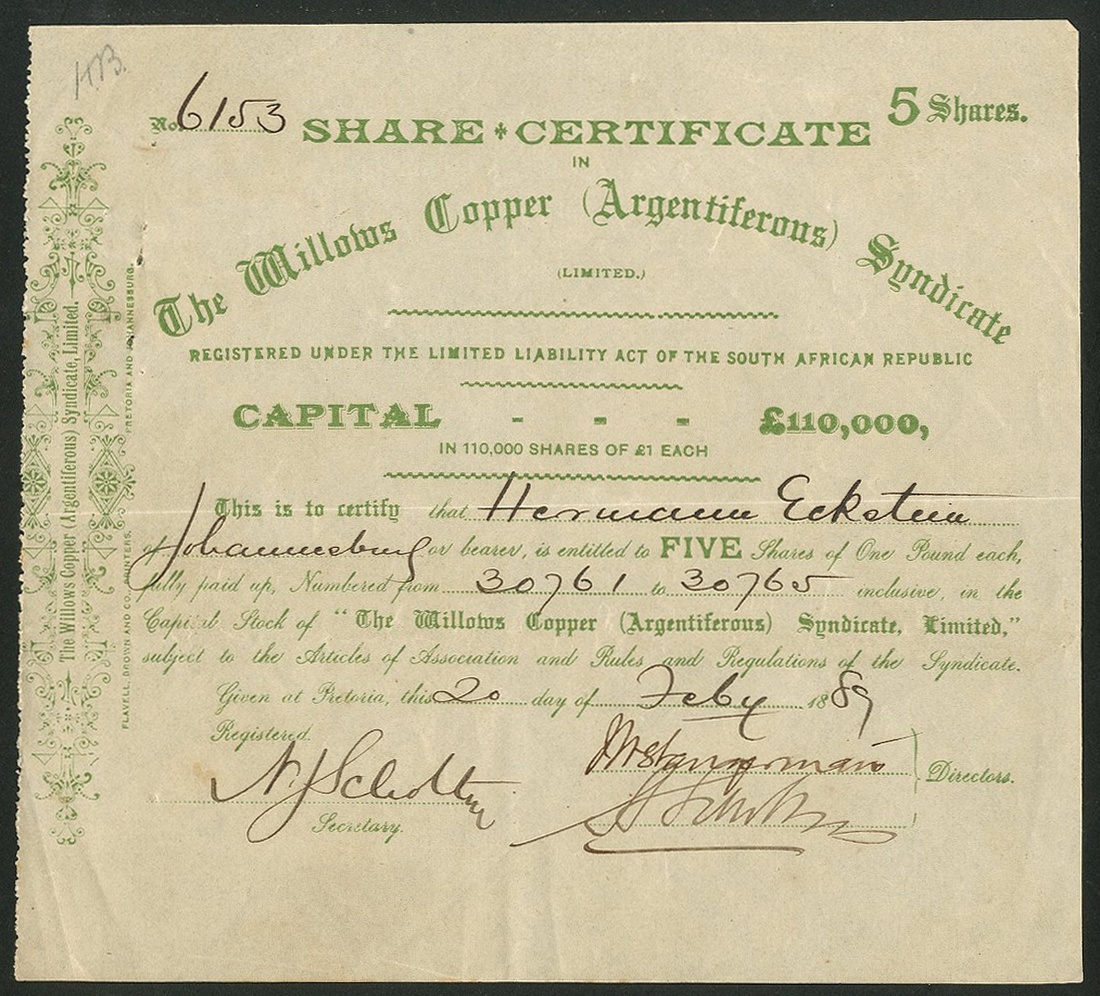 H.B.
No. 6153
5 Shares.
SHARE CERTIFICATE
IN
The Willows Copper (Argentiferous) Syndicate
(LIMITED.)
REGISTERED UNDER THE LIMITED LIABILITY ACT OF THE SOUTH AFRICAN REPUBLIC
CAPITAL - - - £110,000,
IN 110,000 SHARES OF £1 EACH
This is to certify that Hermann Eckstein
of Johannesburg or bearer, is entitled to FIVE Shares of One Pound each,
fully paid up, Numbered from 30761 to 30765 inclusive, in the
Capital Stock of "The Willows Copper (Argentiferous) Syndicate, Limited,"
subject to the Articles of Association and Rules and Regulations of the Syndicate.
Given at Pretoria, this 20 day of Feby 1889
Registered.
Directors.
Secretary.
The Willows Copper (Argentiferous) Syndicate, Limited.
FLAVELL, BROWN AND CO. PRINTERS, PRETORIA AND JOHANNESBURG.